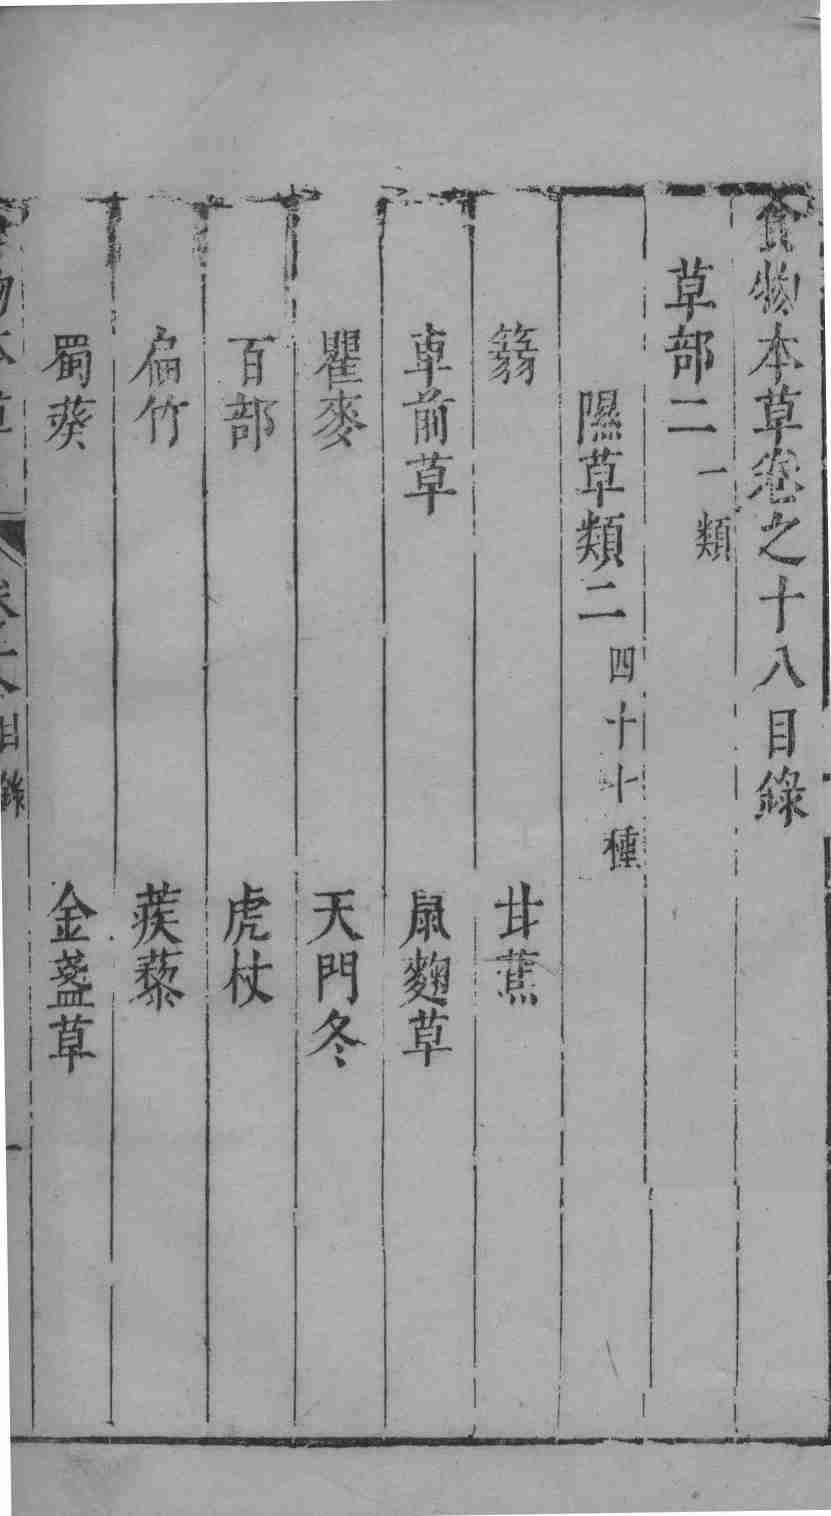 食物本草卷之十八目錄
草部二 一類
隰草類二 四十十種
蒻 甘蕉
車前草 鼠麴草
瞿麥 天門冬
百部 虎杖
扁竹 蒺藜
蜀葵 金盞草
物本草 卷十八目錄 一